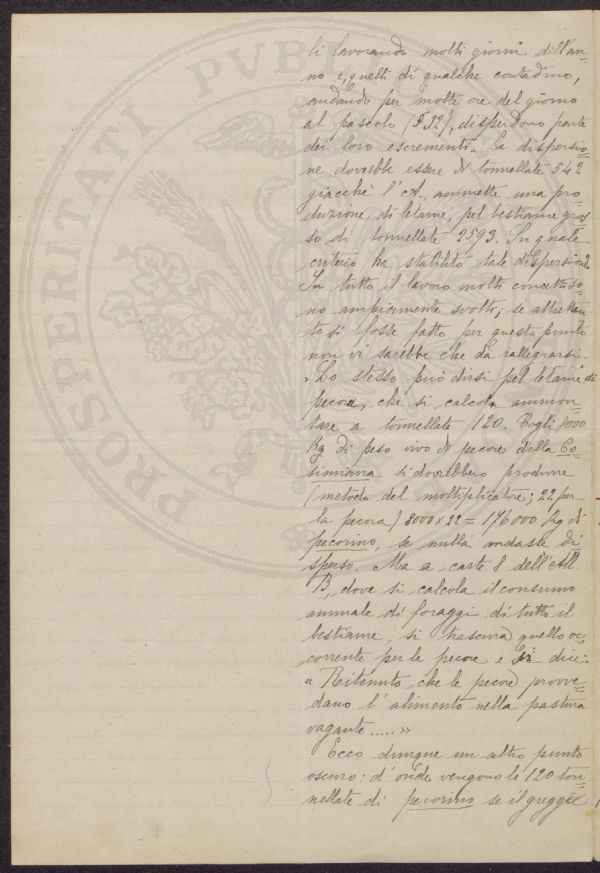 li lavorando molti giorni dell'an-
no e, quelli di qualche contadino,
andando per molte ore del giorno
al pascolo (P. 32), disperdono parte
dei loro escrementi. La dispersio-
ne dovrebbe essere di tonnellate 542
giacchè l'A. ammette una pro-
duzione di letame, pel bestiame gros-
so di tonnellate 2593. In quale
criterio ha stabilito tale dispersione?
In tutto il lavoro molti concetti so-
no ampiamente svolti; se altrettan-
to si fosse fatto per questo punto
non vi sarebbe che da rallegrarsi.
Lo stesso può dirsi pel letame di
pecora, che si calcola ammon-
tare a tonnellate 120. Cogli 8000
Kg di peso vivo di pecore della Co-
simiana si dovrebbero produrre
(metodo del moltiplicatore; 22 per
la pecora) 8000 x 22 = 176000 Kg di
pecorino, se nulla andasse di-
sperso. Ma a carte 8 dell'All.
B, dove si calcola il consumo
annuale di foraggi di tutto il
bestiame, si trascura quello oc-
corrente per le pecore e si dice:
« Ritenuto che le pecore provve-
dano l'alimento nella pastura
vagante ..... »
Ecco dunque un altro punto
oscuro: d'onde vengono le 120 ton-
nellate di pecorino se il gregge
PROSPERITATI PVB